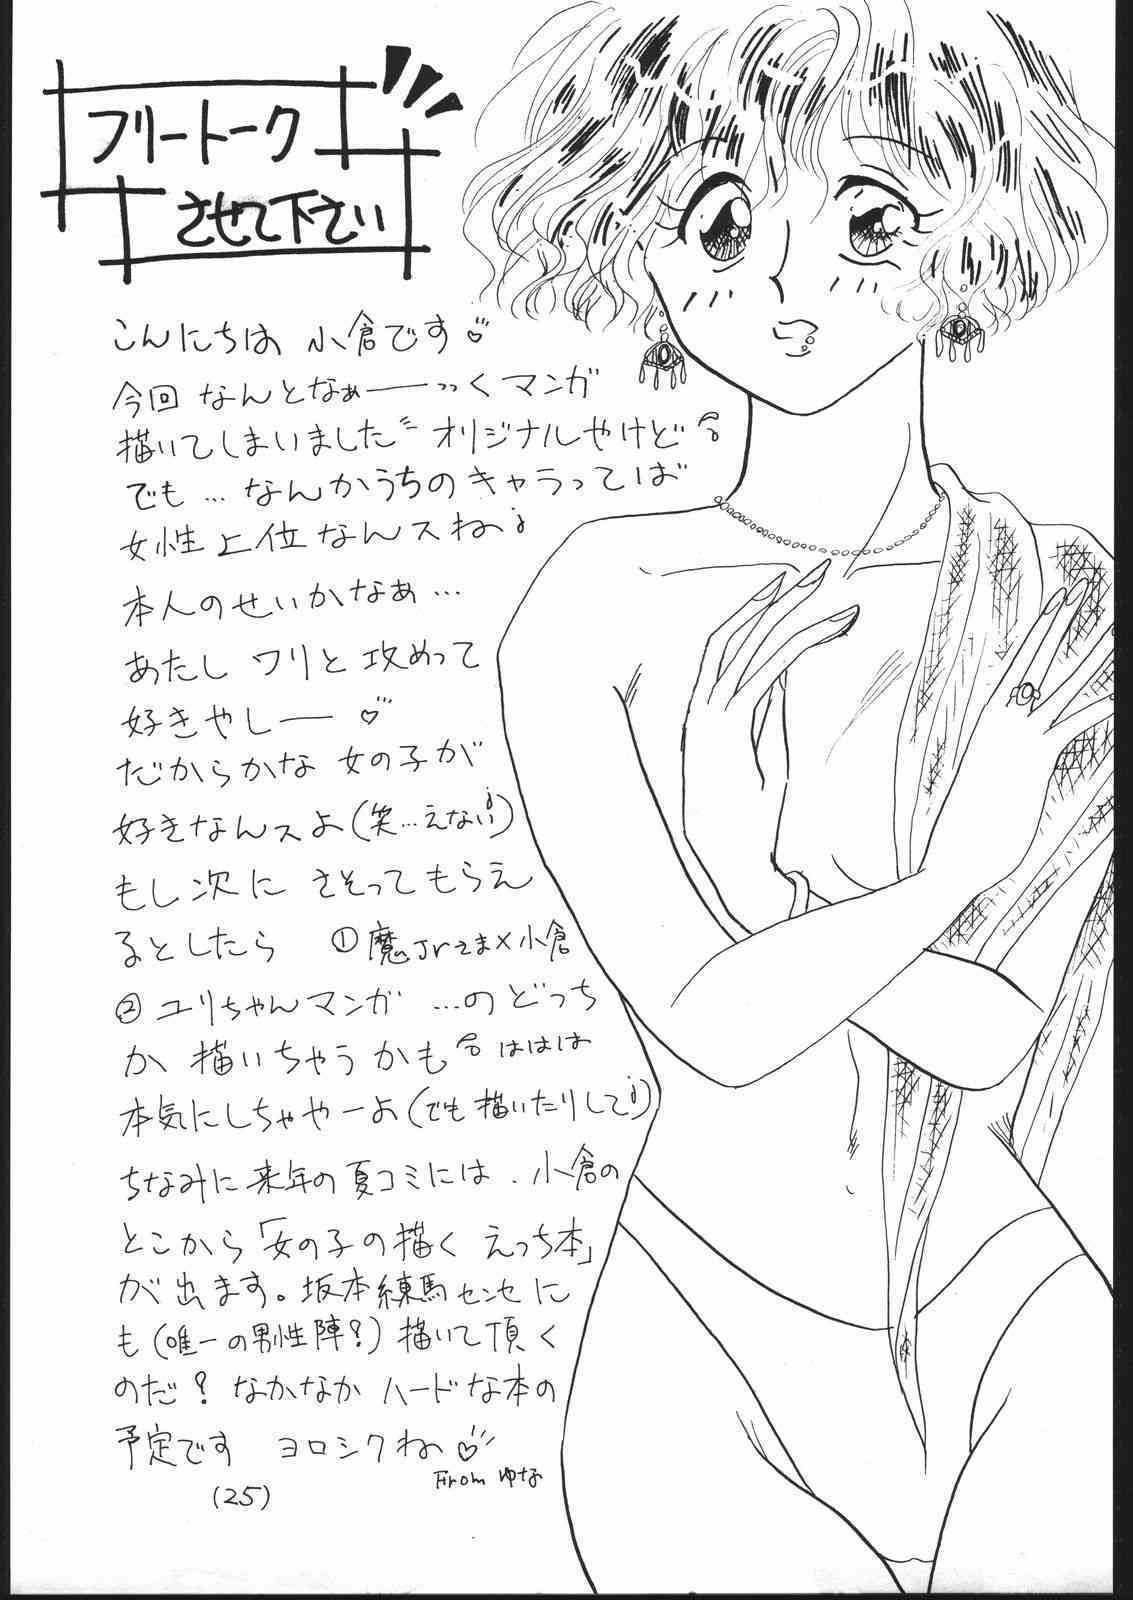 フリートーク
させて下さい
こんにちは 小倉です♡
今回 なんとなぁーーっっくマンガ
描いてしまいました オリジナルやけど
でも…なんかうちのキャラってば
女性上位なんスね
本人のせいかなぁ…
あたし ワリと 攻めって
好きやしー ♡
だからかな 女の子が
好きなんスよ(笑…えない)
もし次に さそってもらえ
るとしたら ①魔Jrさま×小倉
②ユリちゃんマンガ …のどっち
か 描いちゃうかも ははは
本気にしちゃやーよ(でも描いたりして)
ちなみに来年の夏コミには、小倉の
とこから「女の子の描く えっち本」
が出ます。坂本練馬センセに
も(唯一の男性陣?)描いて頂く
のだ? なかなか ハードな本の
予定です ヨロシクね ♡
From ゆな
(25)